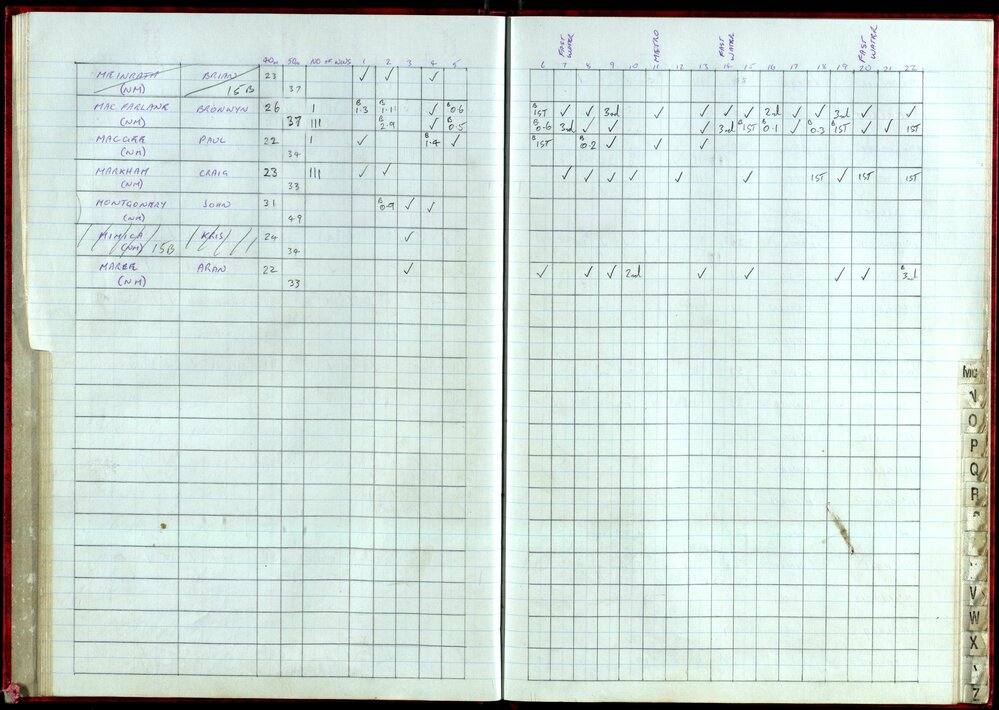 FAST WATER METRO FAST WATER FAST WATER
40m 50m NO OF WINS 1 2 3 4 5 6 7 8 9 10 11 12 13 14 15 16 17 18 19 20 21 22
MEINRATH BRIAN 23 ✓ ✓ ✓
(NM) 15B 37
MACFARLANE BRONWYN 26 I B 1.3 B 1.11 ✓ B 0.6 B 1ST ✓ ✓ 3rd ✓ ✓ ✓ ✓ 2nd ✓ ✓ 3rd ✓ ✓
(NM) 37 III B 2.9 ✓ B 0.5 B 0.6 3rd ✓ ✓ ✓ 3rd B 1ST B 0.1 ✓ B 0.3 B 1ST ✓ ✓ 1ST
MAGGEE PAUL 22 I ✓ B 1.4 ✓ B 1ST B 0.2 ✓ ✓ ✓
(NM) 34
MARKHAM CRAIG 23 III ✓ ✓ ✓ ✓ ✓ ✓ ✓ ✓ 1ST ✓ 1ST 1ST
(NM) 33
MONTGOMERY JOHN 31 B 0.9 ✓ ✓
(NM) 49
MIMICA KRIS 24 ✓
(NM) 15B 34
MAREE ARAN 22 ✓ ✓ ✓ ✓ 2nd ✓ ✓ ✓ ✓ B 3rd
(NM) 33
Mc
N
O
P
Q
R
V
W
X
Z